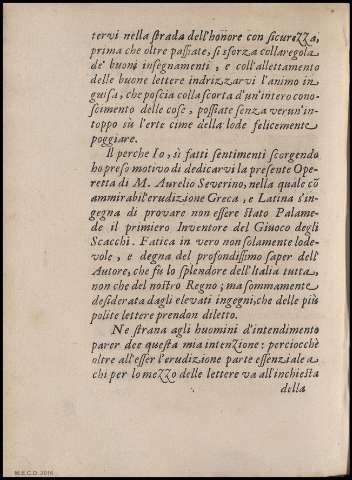 tervi nella strada dell'honore con sicurezza,
prima che oltre passiate, si sforza colla regola
de' buoni insegnamenti, e coll'allettamento
delle buone lettere indrizzarvi l'animo in
guisa, che poscia colla scorta d'un'intero cono-
scimento delle cose, possiate senza verun'in-
toppo sù l'erte cime della lode felicemente
poggiare.
Il perche Io, sì fatti sentimenti scorgendo
ho preso motivo di dedicarvi la presente Ope-
retta di M. Aurelio Severino, nella quale cō
ammirabil'erudizione Greca, e Latina s'in-
gegna di provare non essere stato Palame-
de il primiero Inventore del Giuoco degli
Scacchi. Fatica in vero non solamente lode-
vole, e degna del profondissimo saper dell'
Autore, che fù lo splendore dell'Italia tutta,
non che del nostro Regno; ma sommamente
desiderata dagli elevati ingegni, che delle più
polite lettere prendon diletto.
Ne strana agli huomini d'intendimento
parer dee questa mia intenzione: perciocchè
oltre all'esser l'erudizione parte essenziale a
chi per lo mezzo delle lettere va all'inchiesta
della
M.E.C.D. 2016